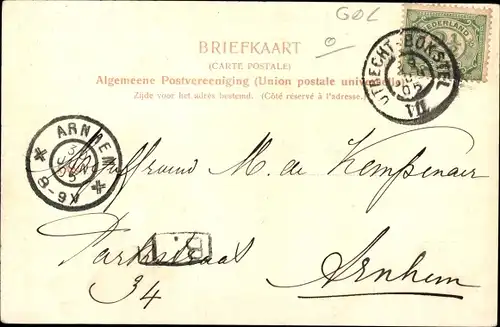 GOL
BRIEFKAART
(CARTE POSTALE)
Algemeene Postvereeniging (Union postale universelle)
Zijde voor het adres bestemd. (Côté réservé à l'adresse.)
NEDERLAND
UTRECHT-BOKSTEL
VII
ARNHEM
8-9V
Mejuffrouw M. de Kempenaer
Parkstraat
34
Arnhem